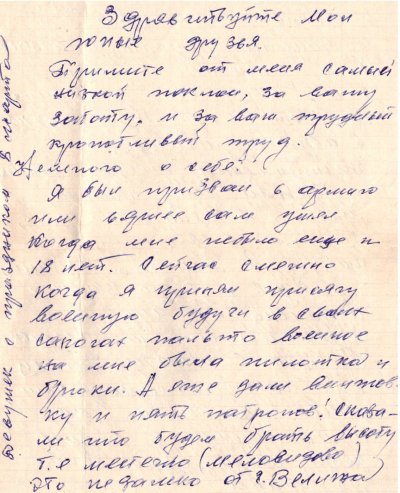 Здравствуйте Мои
юные друзья.
Примите от меня самый
низкой поклон, за вашу
заботу. и за ваш трудный
кропотливый труд.
Немного о себе:
Я был призван в армию
или вернее сам ушел
Когда мне небыло еще и
18 лет. Сейчас смешно
когда я принял присягу
военную будучи в своих
сапогах пальто военное
на мне была пилотка и
брюки. А еще дали винтов-
ку и пять патронов! Сказа-
ли что будем брать высоту
т.е местечко (Меловидово)
это недалеко от г. Велижа
девушек с праздником 8 марта